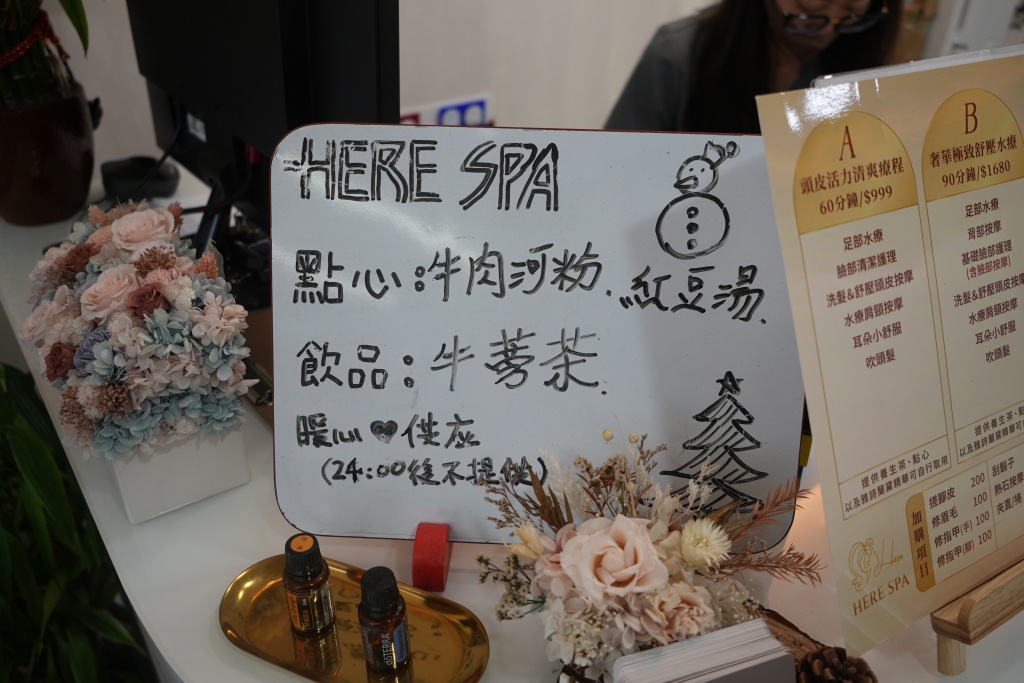 HERE SPA
點心:牛肉河粉.紅豆湯.
飲品:牛蒡茶.
暖心♥供應
(24:00後不提供)
A
頭皮活力清爽療程
60分鐘/$999
足部水療
臉部清潔護理
洗髮&舒壓頭皮按摩
水療肩頸按摩
耳朵小舒服
吹頭髮
提供養生茶、點心
以及雅詩蘭黛精華可自行取用
B
奢華極致舒壓水療
90分鐘/$1680
足部水療
背部按摩
基礎臉部護理
(含臉部按摩)
洗髮&舒壓頭皮按摩
水療肩頸按摩
耳朵小舒服
吹頭髮
提供養生茶、點
以及雅詩蘭黛精華可
加購項目
搓腳皮 200
修眉毛 100
修指甲(手) 100
修指甲(腳) 100
刮鬍子
熱石按摩
夾直/捲
Here
HERE SPA
dōTERRA